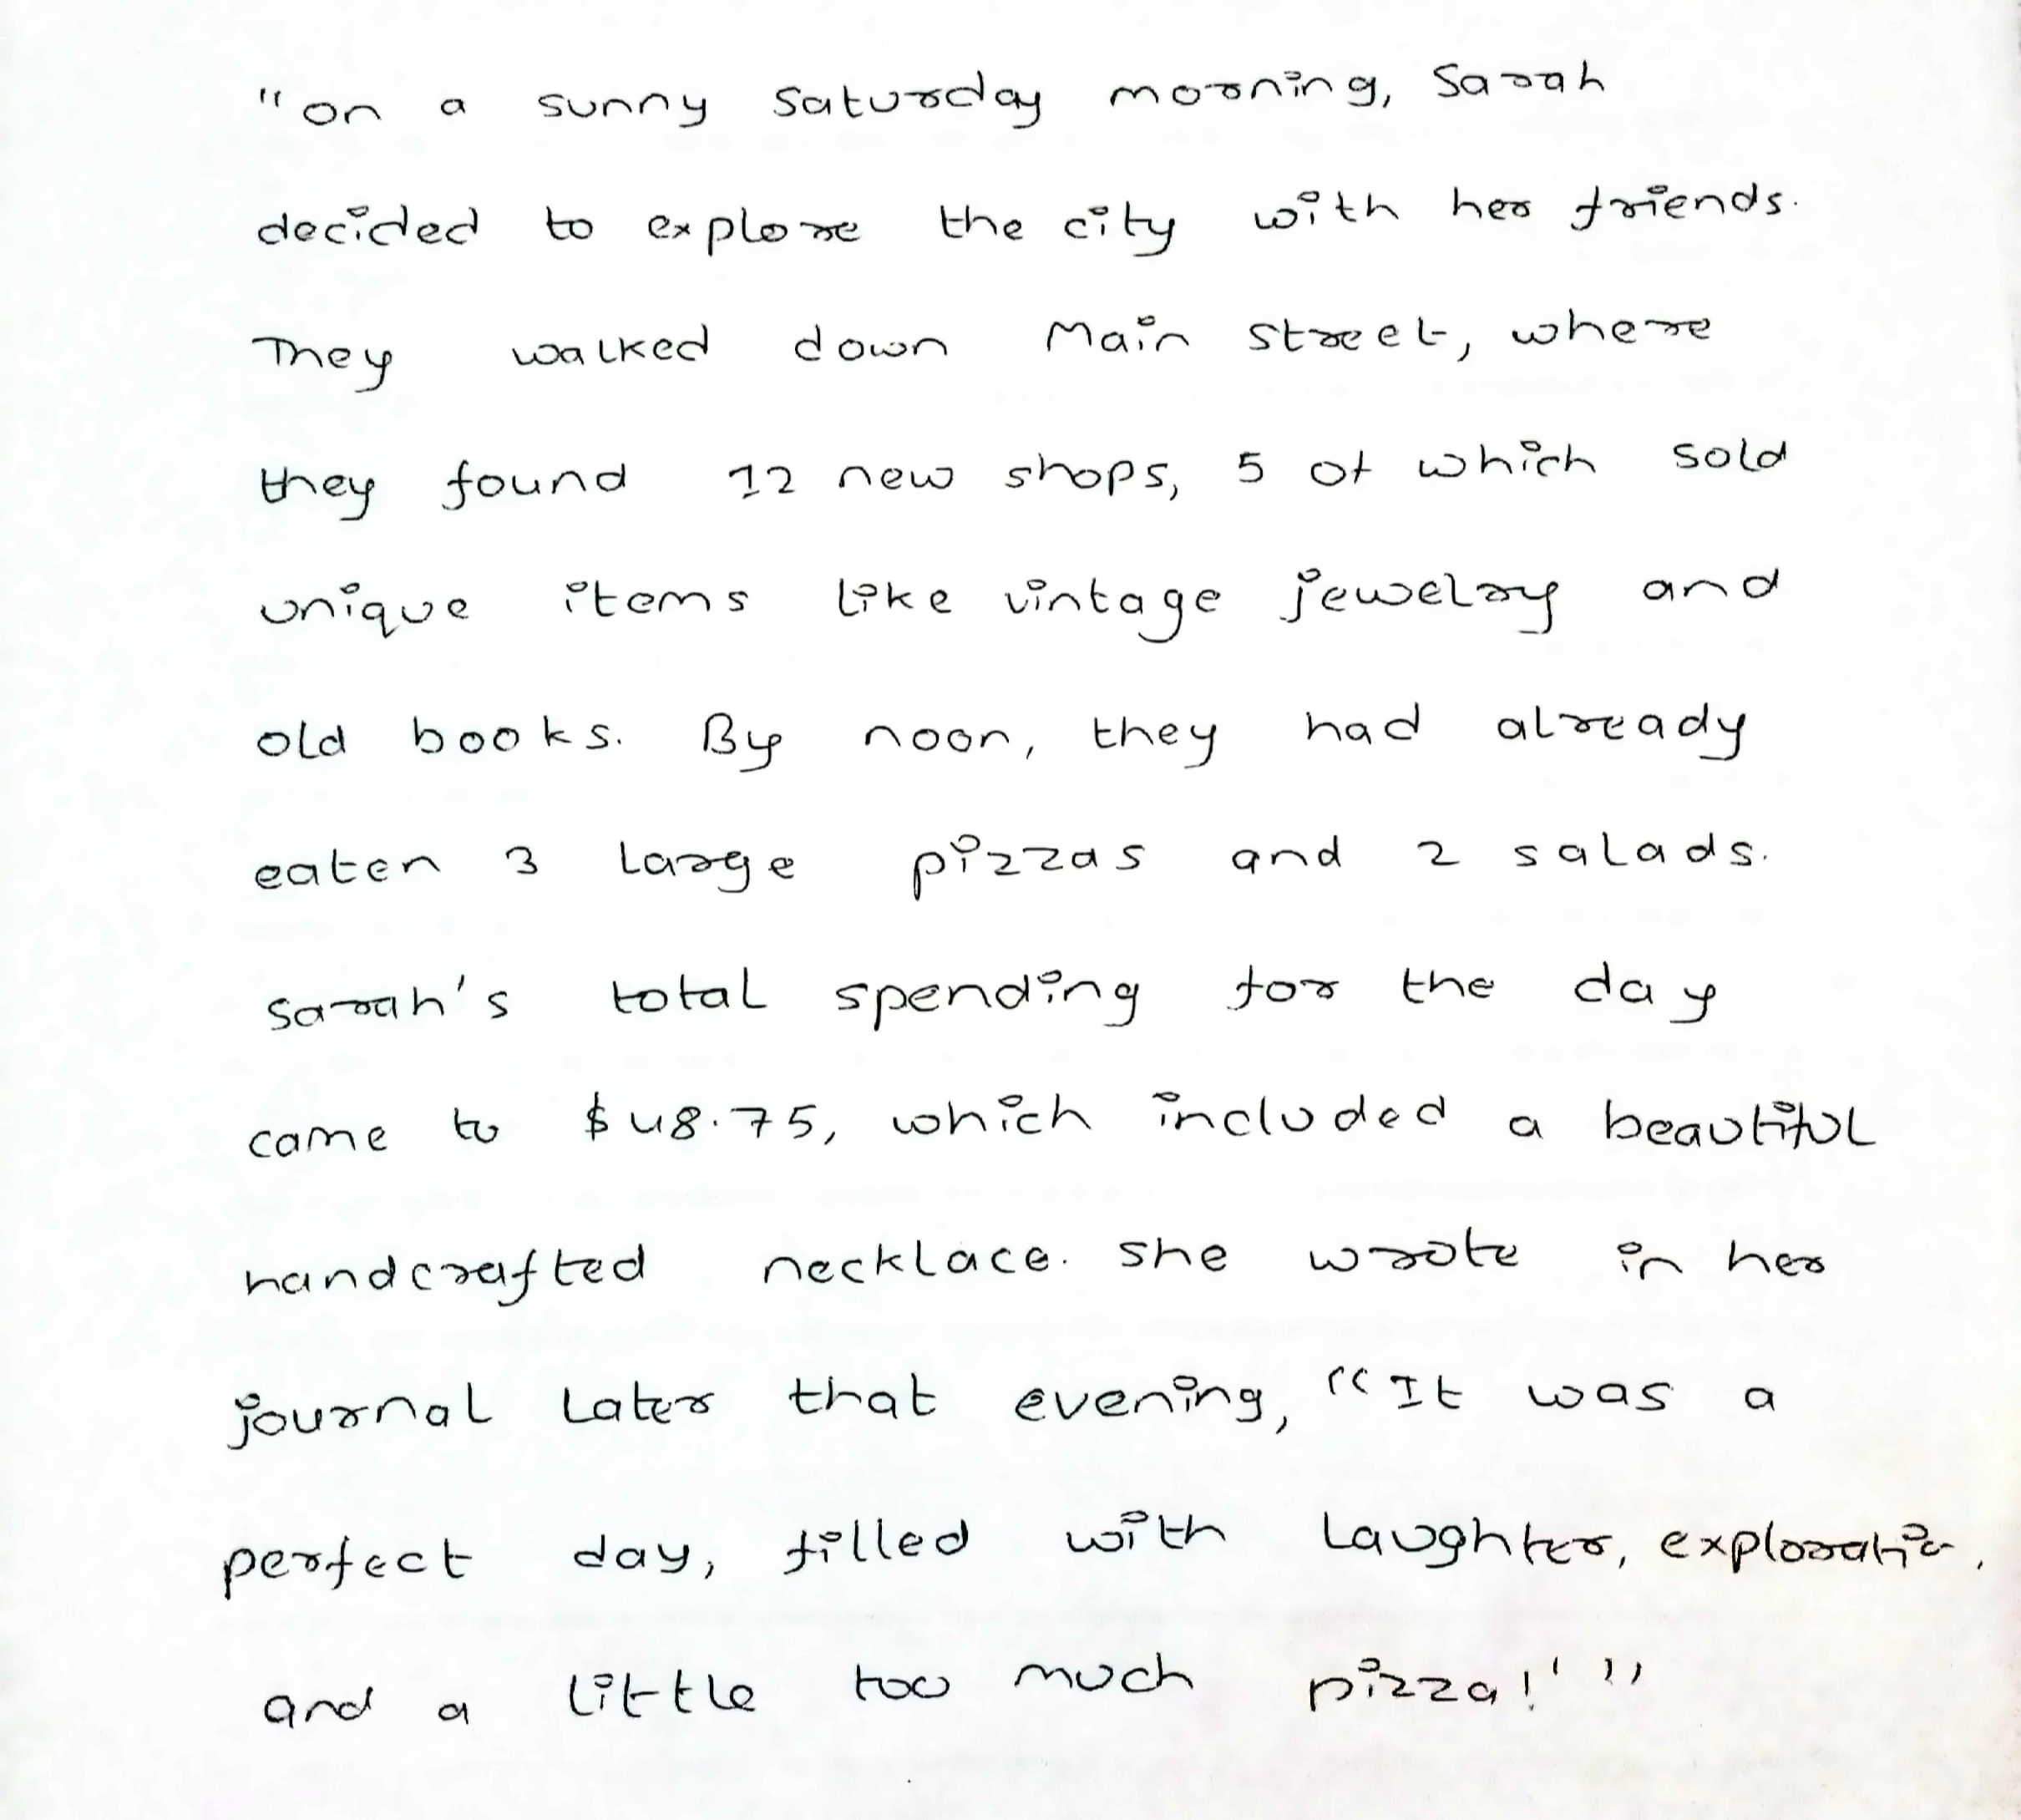 "on a sunny saturday morning, Sarah
decided to explore the city with her friends.
They walked down Main street, where
they found 12 new shops, 5 of which sold
unique items like vintage jewelry and
old books. By noon, they had already
eaten 3 large pizzas and 2 salads.
sarah's total spending for the day
came to $48.75, which included a beautiful
handcrafted necklace. she wrote in her
journal later that evening, "It was a
perfect day, filled with laughter, exploration,
and a little too much pizza!' "